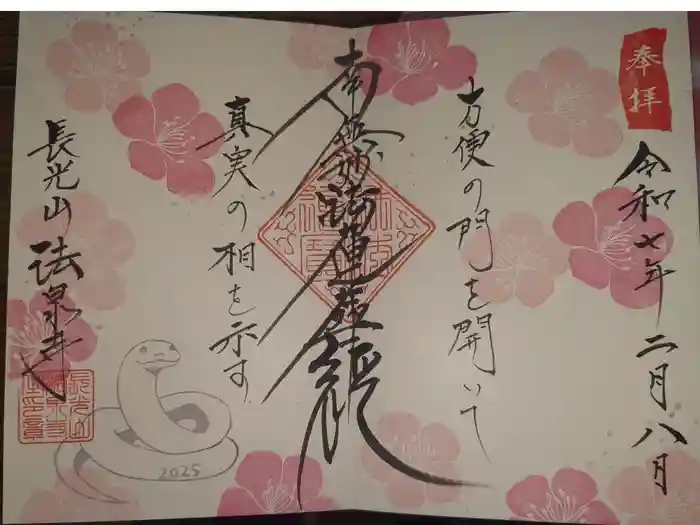 奉拝
令和七年二月八月
方便の門を開いて
南無妙法蓮華経
真実の相を示す
長光山
法泉寺
2025